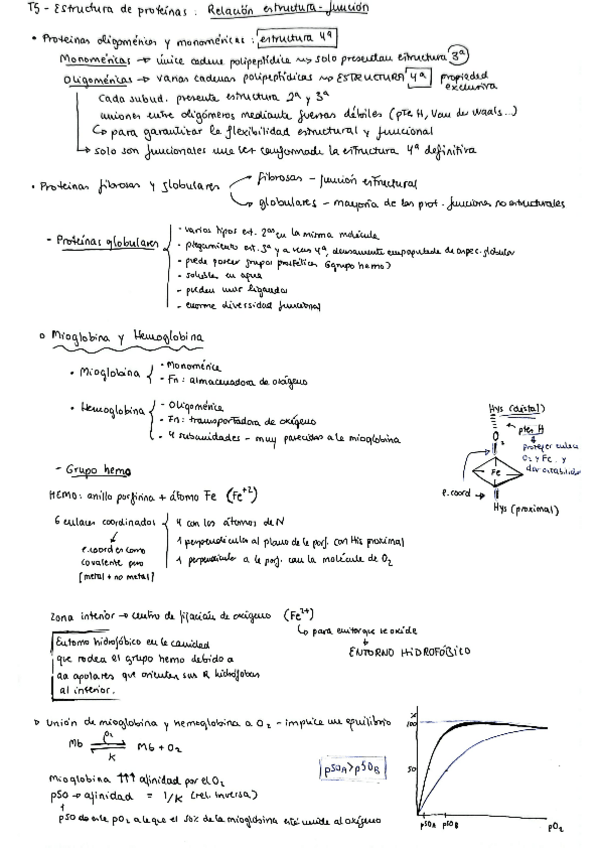 T5 - Estructura de proteínas: Relación estructura-función
• Proteínas oligoméricas y monoméricas: estructura 4ª
Monoméricas → única cadena polipeptídica ⇝ solo presentan estructura 3ª
Oligoméricas → varias cadenas polipeptídicas ⇝ ESTRUCTURA 4ª propiedad exclusiva
Cada subud. presenta estructura 2ª y 3ª
uniones entre oligómeros mediante fuerzas débiles (pte H, Van der Waals...)
↳ para garantizar la flexibilidad estructural y funcional
→ solo son funcionales una vez conformada la estructura 4ª definitiva
• Proteínas fibrosas y globulares
fibrosas - función estructural
globulares - mayoría de las prot. funciones no estructurales
- Proteínas globulares
- varios tipos est. 2as en la misma molécula
- plegamiento est. 3ª y a veces 4ª, densamente empaquetada de aspec. globular
- puede poseer grupos prostéticos (grupo hemo)
- soluble en agua
- pueden unir ligandos
- enorme diversidad funcional
o Mioglobina y Hemoglobina
• Mioglobina
- Monomérica
- Fn: almacenadora de oxígeno
• Hemoglobina
- Oligomérica
- Fn: transportadora de oxígeno
- 4 subunidades - muy parecidas a la mioglobina
Hys (distal)
ptes H
O2
proteger enlace
O2 y Fe. y
dar estabilidad
Fe
e.coord →
Hys (proximal)
- Grupo hemo
HEMO: anillo porfirina + átomo Fe (Fe+2)
6 enlaces coordinados
4 con los átomos de N
1 perpendicular al plano de la porf. con His proximal
1 perpendicular a la porf. con la molécula de O2
e.coord es como
covalente pero
[metal + no metal]
Zona interior → centro de fijación de oxígeno (Fe2+)
↳ para evitar que se oxide
ENTORNO HIDROFÓBICO
Entorno hidrofóbico en la cavidad
que rodea el grupo hemo debido a
aa apolares que orientan sus R hidrófobas
al interior.
Unión de mioglobina y hemoglobina a O2 - implica un equilibrio
Mb ⇌ Mb + O2
O2
K
Mioglobina ↑↑↑ afinidad por el O2
p50 → afinidad = 1/K (rel. inversa)
p50 es la pO2 a la que el 50% de la mioglobina está unida al oxígeno
p50A > p50B
%
100
50
p50A p50B
pO2